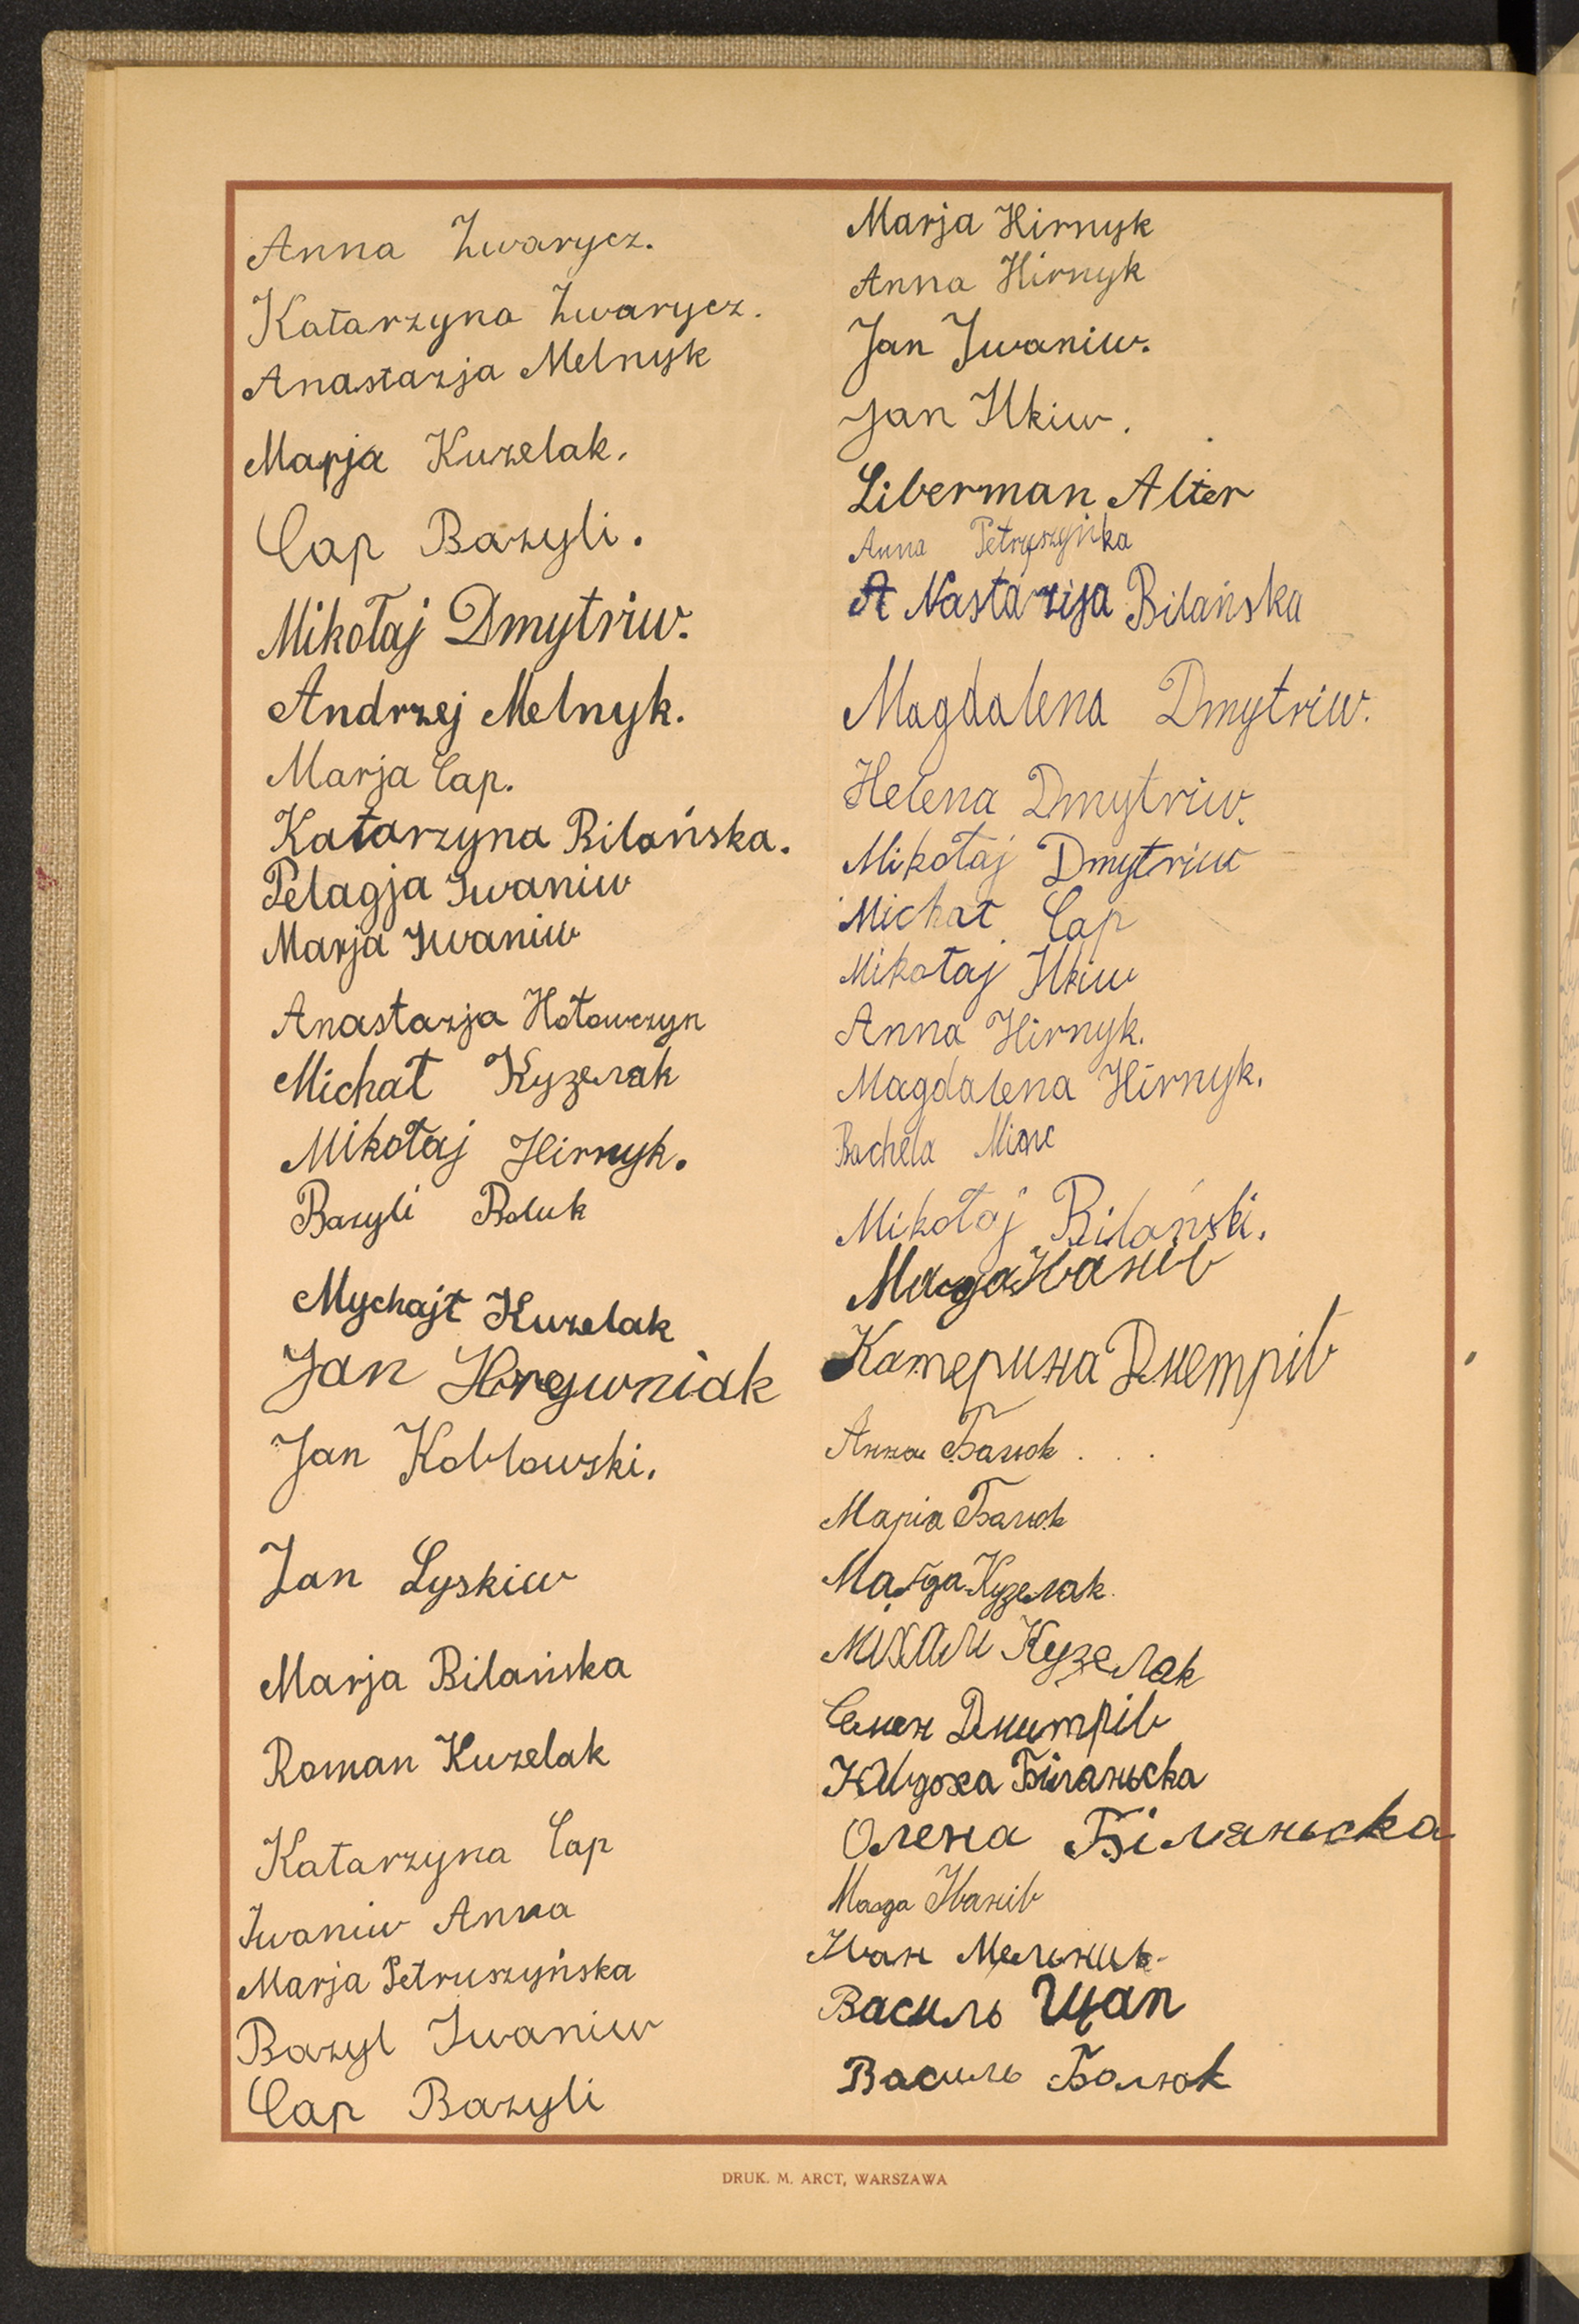 Anna Zwarycz.
Katarzyna Zwarycz.
Anastazja Melnyk
Marja Kuzelak.
Cap Bazyli.
Mikołaj Dmytriw.
Andrzej Melnyk.
Marja Cap.
Katarzyna Bilańska.
Pelagja Iwaniw
Marja Iwaniw
Anastazja Hołowczyn
Michał Кузелак
Mikołaj Hirnyk.
Bazyli Baluk
Mychajł Kuzelak
Jan Hrywniak
Jan Kobłowski.
Jan Łyskiw
Marja Bilańska
Roman Kuzelak
Katarzyna Cap
Iwaniw Anna
Marja Petruszyńska
Bazyl Iwaniw
Cap Bazyli
Marja Hirnyk
Anna Hirnyk
Jan Iwaniw.
Jan Ilkiw.
Liberman Alter
Anna
A Nastazija Bilańska
Magdalena Dmytriw.
Helena Dmytriw.
Mikołaj Dmytriw
Michał Cap
Mikołaj Ilkiw
Anna Hirnyk.
Magdalena Hirnyk.
Rachela
Mikołaj Bilański.
Іванів
Катерина Дметрів
Анна Балюк
Марія Балюк
Кузелак
Міхали Кузелак
Семен Дмитрів
Біланьска
Олена Біланьска
Іванів
Іван Мельник
Василь Цап
Василь Балюк
DRUK. M. ARCT, WARSZAWA